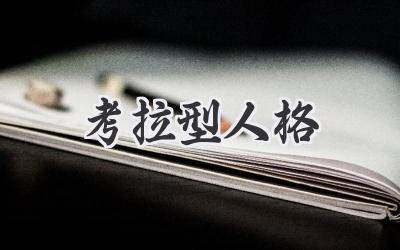 考拉型人格